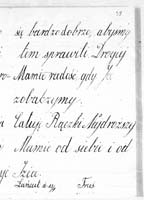 się bardzo dobrze, abyśmy
tem sprawili Drogiej
Mamie radość gdy Ją
zobaczymy.
Całuję Rączki Najdroższej
Mamie od siebie i od
Izia.